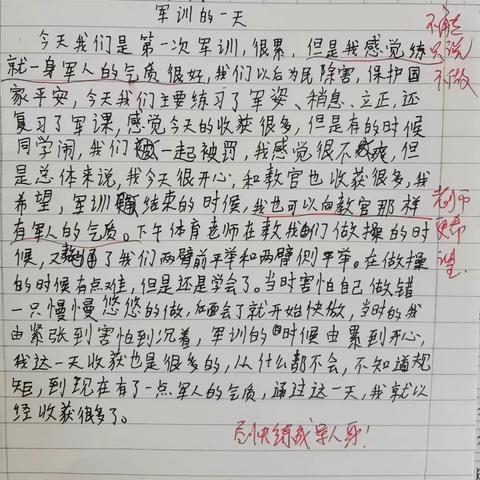 军训的一天
今天我们是第一次军训,很累,但是我感觉练
就一身军人的气质很好,我们以后为民除害,保护国
家平安,今天我们主要练习了军姿、稍息、立正,还
复习了军课,感觉今天的收获很多,但是有的时候
同学闹,我们一起被罚,我感觉很不爽,但
是总体来说,我今天很开心,和教官也收获很多,我
希望,军训结束的时候,我也可以向教官那样
有军人的气质。下午体育老师在教我们做操的时
候,又教了我们两臂前平举和两臂侧平举。在做操
的时候有点难,但是还是学会了。当时害怕自己做错
一只慢慢悠悠的做,后面会了就开始快做,当时的我
由紧张到害怕到沉着,军训的时候由累到开心,
我这一天收获也是很多的,从什么都不会,不知道规
矩,到现在有了一点军人的气质,通过这一天,我就以
经收获很多了。
不能
只说
不做
老师
更希
尽快练成军人身!